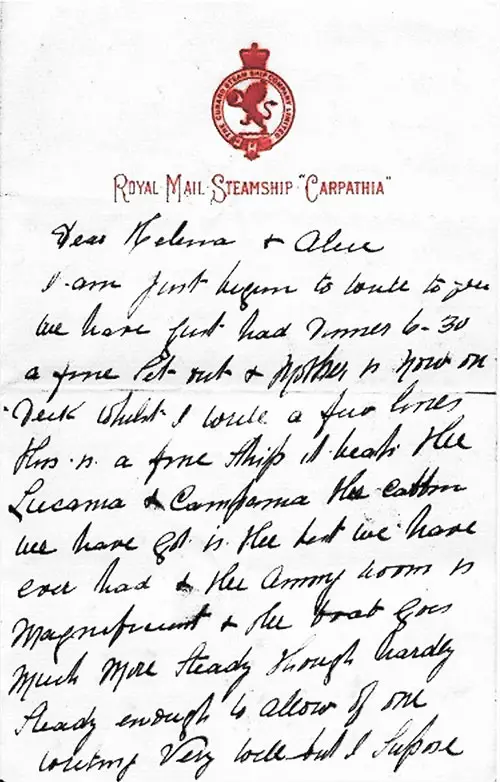 THE CUNARD STEAM SHIP COMPANY LIMITED
ROYAL MAIL STEAMSHIP "CARPATHIA"
Dear Helena & Alice
I am just begun to write to you
we have just had Dinner 6-30
a fine set out & Mother is now on
Deck whilst I write a few lines
this is a fine Ship it beats the
Lucania & Campania the cabbin
we have got is the best we have
ever had & the dining room is
magnificent & the boat goes
much more steady though hardly
steady enough to allow of one
writing very well but I Supose